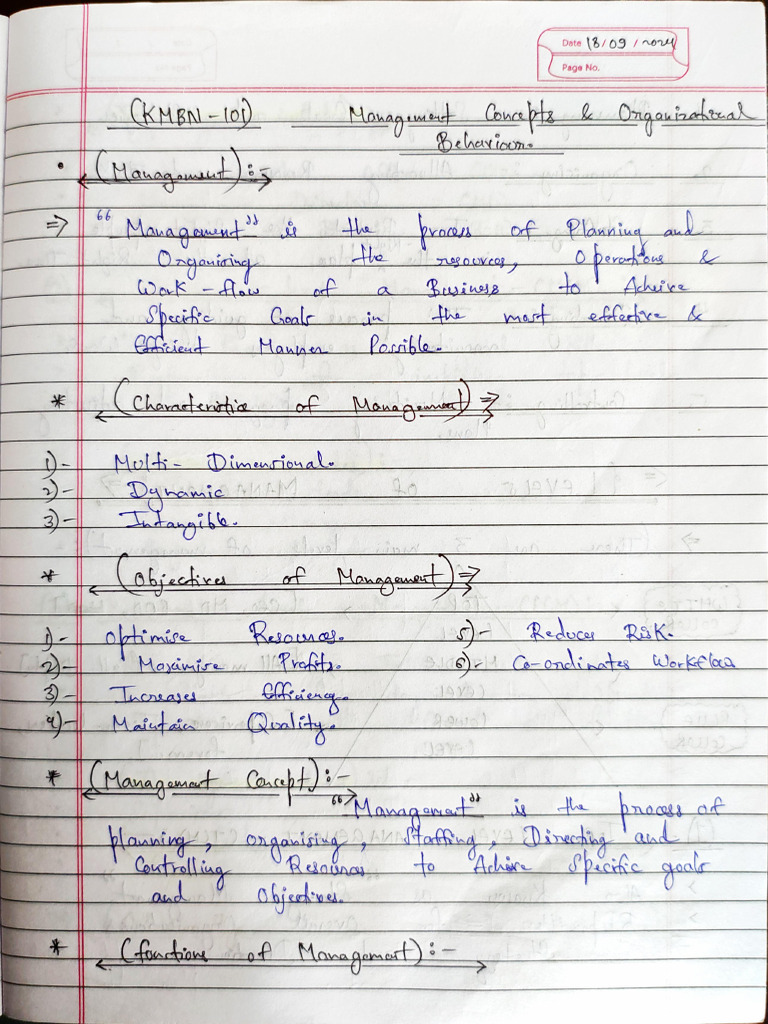 Date 18/09/2024
Page No.
(KMBN-101) Management Concepts & Organizational
Behaviour.
• (Management):-
⇒ "Management" is the process of Planning and
Organising the resources, Operations &
Work-flow of a Business to Acheive
Specific Goals in the most effective &
Efficient Manner Possible.
* (Characteristics of Management) ⇒
1)- Multi-Dimensional.
2)- Dynamic
3)- Intangible.
* (Objectives of Management) ⇒
1)- Optimise Resources. 5)- Reduces Risk.
2)- Maximise Profits. 6)- Co-ordinates Workflow
3)- Increases Efficiency.
4)- Maintain Quality.
* (Management Concept):-
"Management" is the process of
planning, organising, Staffing, Directing and
Controlling Resources to Achive Specific goals
and Objectives.
* (functions of Management):-